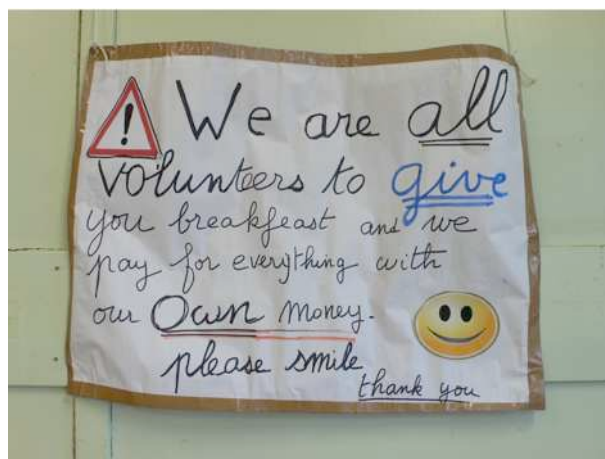 ! We are all
volunteers to give
you breakfeast and we
pay for everything with
our own money.
please smile
thank you